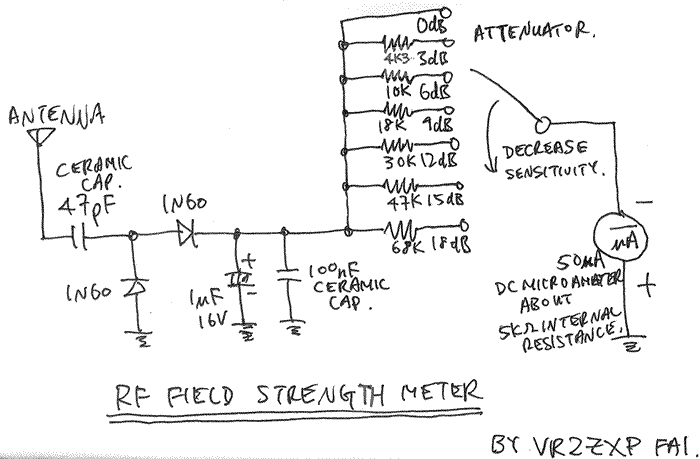 0dB
ATTENUATOR.
4K3 3dB
10K 6dB
ANTENNA
18K 9dB
CERAMIC
CAP.
47pF
30K 12dB
DECREASE
SENSITIVITY.
1N60
47K 15dB
68K 18dB
-
μA
50μA
DC MICROAMETER
ABOUT
5KΩ INTERNAL
RESISTANCE.
+
1N60
+
-
1μF
16V
100nF
CERAMIC
CAP.
RF FIELD STRENGTH METER
BY VR2ZXP FAI.